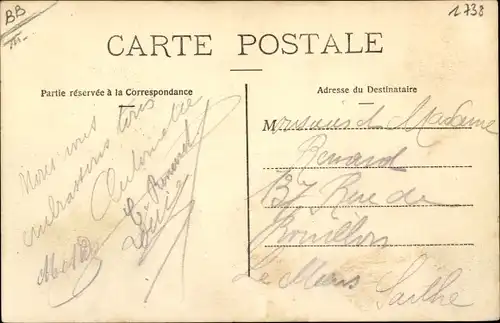 BB
1738
CARTE POSTALE
Partie réservée à la Correspondance
Adresse du Destinataire
Nous vous
embrassons tous
Antoinette
Renard
Monsieur et Madame
Renard
137 Rue de
Le Mans
Sarthe